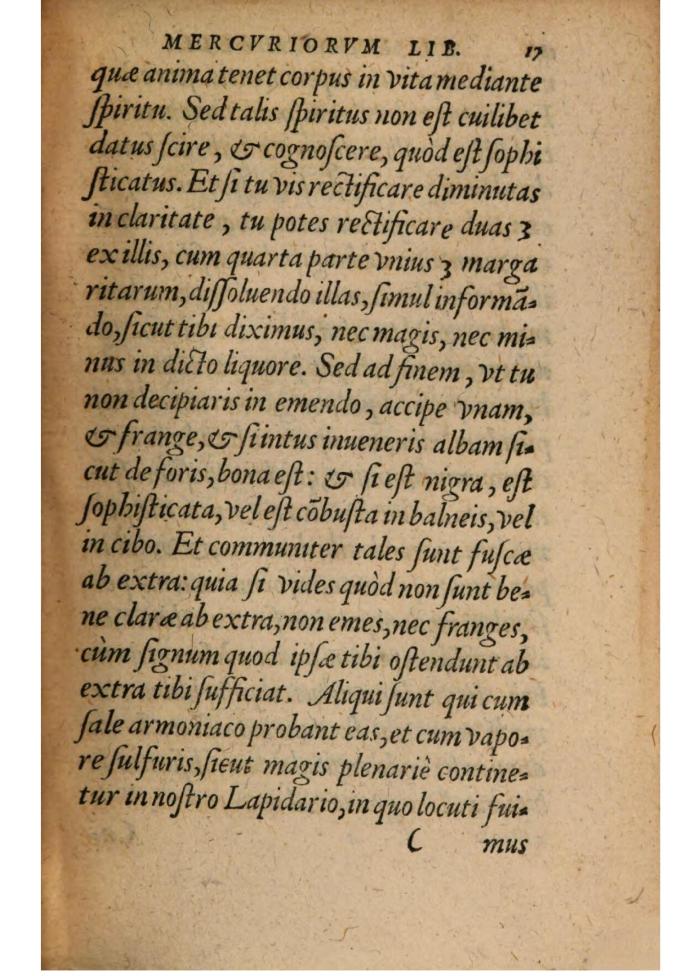 MERCVRIORVM LIB. 17
quæ anima tenet corpus in vita mediante
ſpiritu. Sed talis ſpiritus non eſt cuilibet
datus ſcire, & cognoſcere, quòd eſt ſophi
ſticatus. Et ſi tu vis rectificare diminutas
in claritate, tu potes rectificare duas ʒ
ex illis, cum quarta parte vnius ʒ marga
ritarum, diſſoluendo illas, ſimul informã-
do, ſicut tibi diximus, nec magis, nec mi-
nus in dicto liquore. Sed ad finem, vt tu
non decipiaris in emendo, accipe vnam,
& frange, & ſi intus inueneris albam ſi-
cut de foris, bona eſt: & ſi eſt nigra, eſt
ſophiſticata, vel eſt cõbuſta in balneis, vel
in cibo. Et communiter tales ſunt fuſcæ
ab extra: quia ſi vides quòd non ſunt be-
ne claræ ab extra, non emes, nec franges,
cùm ſignum quod ipſæ tibi oſtendunt ab
extra tibi ſufficiat. Aliqui ſunt qui cum
ſale armoniaco probant eas, et cum vapo-
re ſulfuris, ſicut magis plenariè contine-
tur in noſtro Lapidario, in quo locuti fui-
C mus